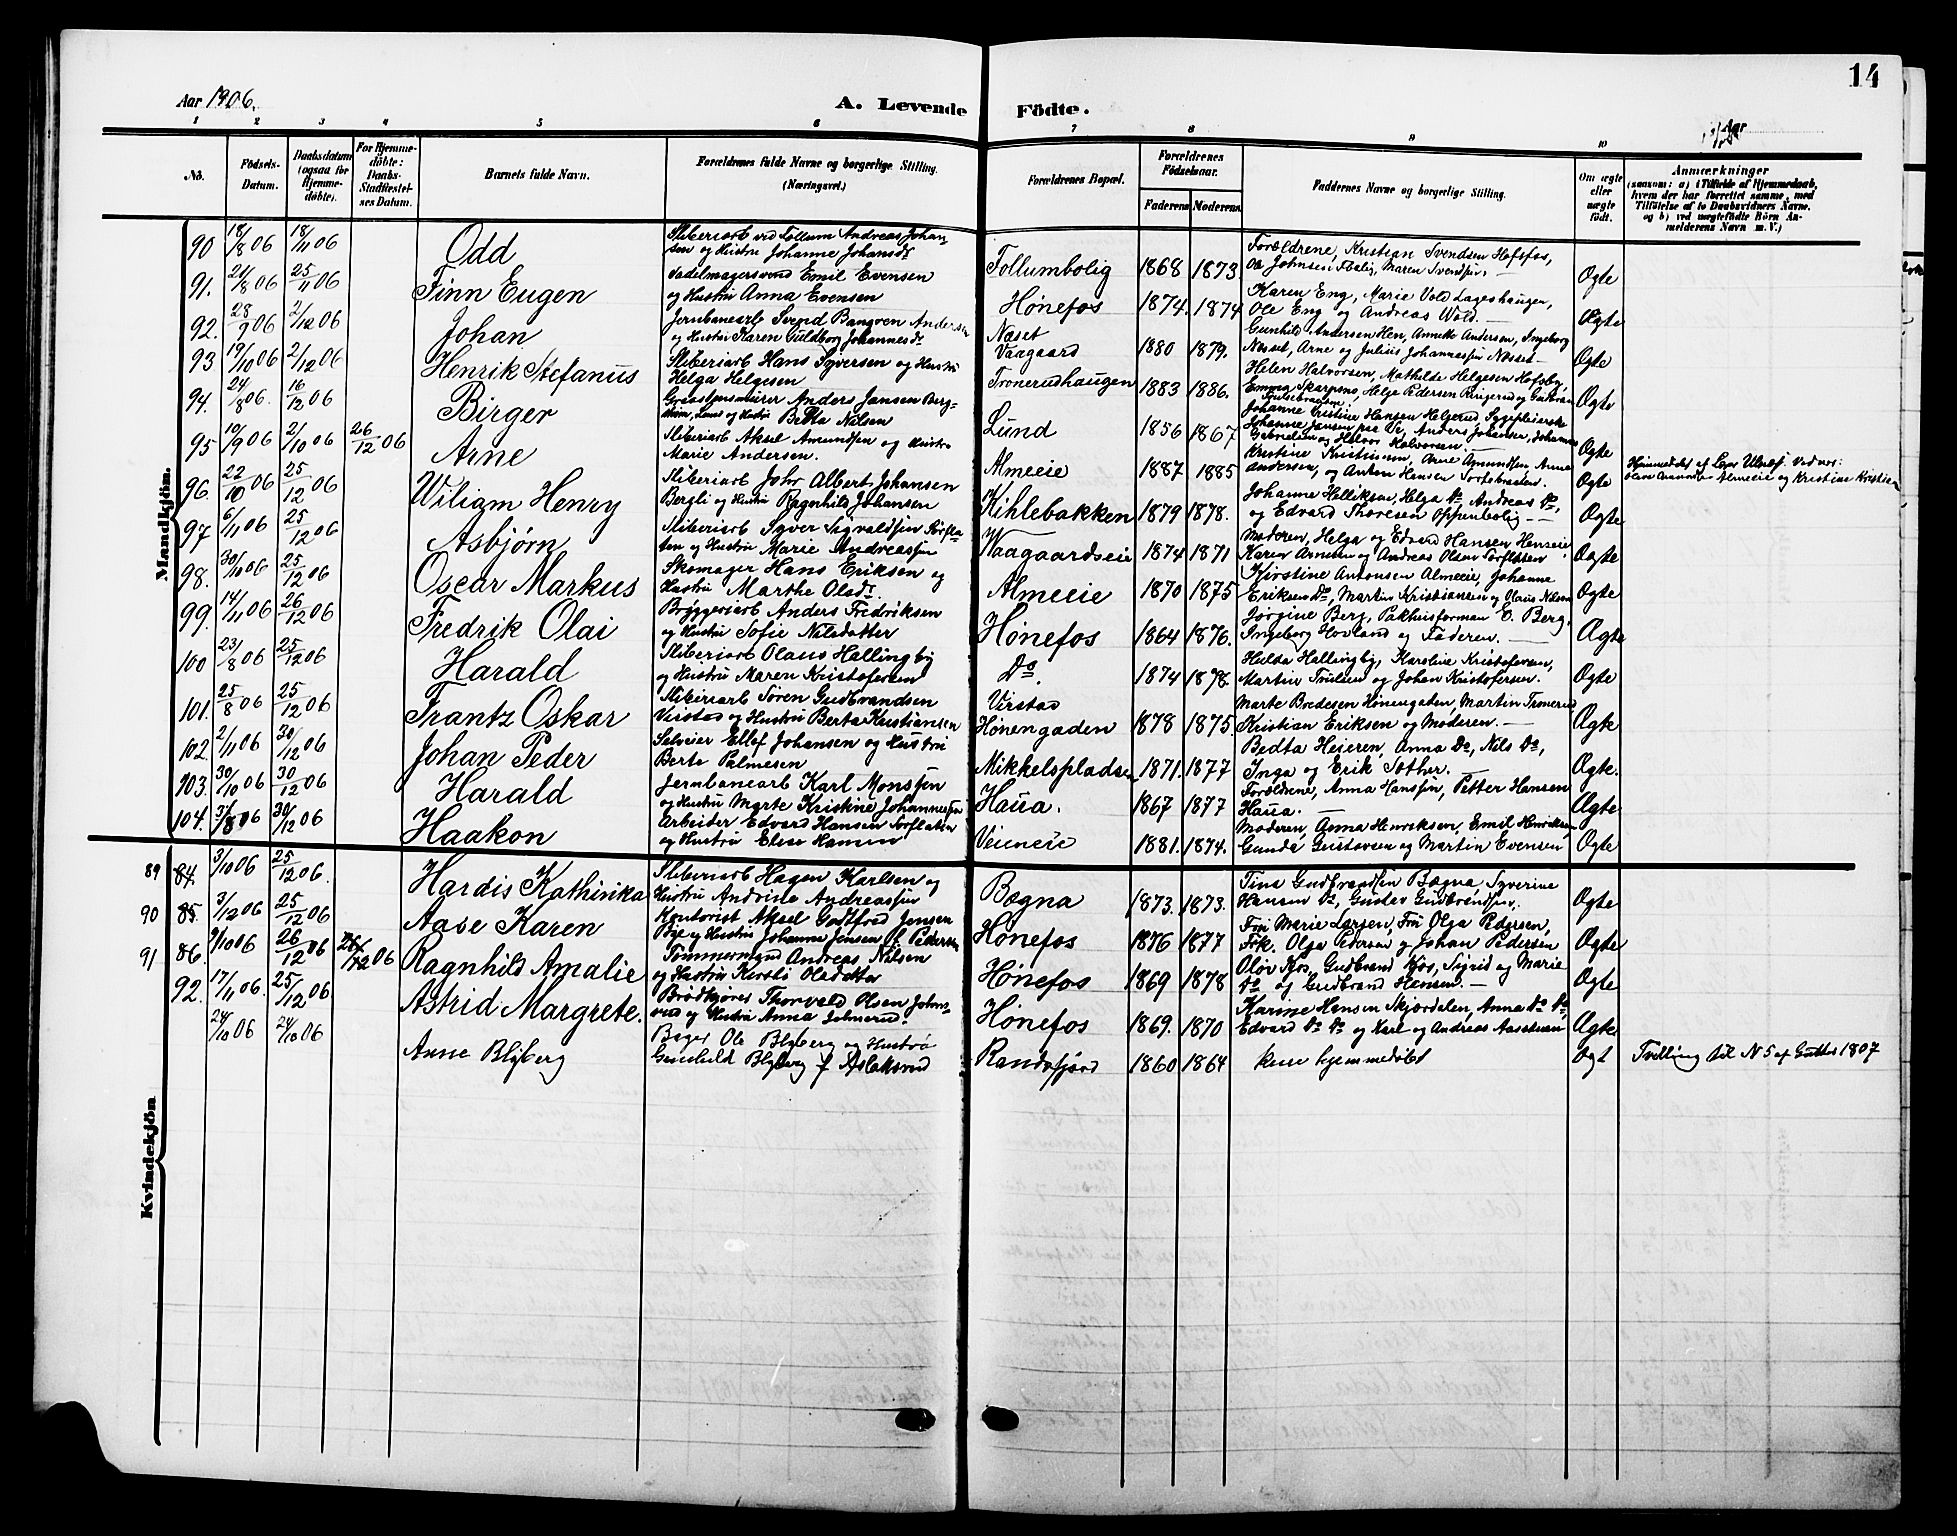 14
Aar 1906.
A. Levende Födte.
Aar
1 2 3 4 5 6 7 8 9 10
No.
Födsels-Datum.
Daabsdatum (ogsaa for Hjemmedöbte).
For Hjemmedöbte: Daabs-Stadfæstelses Datum.
Barnets fulde Navn.
Forældrenes fulde Navne og borgerlige Stilling. (Næringsvei.)
Forældrenes Bopæl.
Forældrenes Födselsaar.
Faderens Moderens
Faddernes Navne og borgerlige Stilling.
Om ægte eller uægte födt.
Anmærkninger (saasom: a) i Tilfælde af Hjemmedaab, hvem der har forrettet samme, med Tilföielse af to Daabsvidners Navne, og b) ved uægtefödte Börn Anmelderens Navn m. V.)
Mandkjön.
90 18/8 06 18/11 06 Odd Sliberiarb ved Follum Andreas Johansen og Hustru Johanne Johansdr Follumbolig 1868 1873 Forældrene, Kristian Svendsen Hofsfos, Ole Johnsen Maren Svendsen. Ægte
91. 21/8 06 25/11 06 Finn Eugen Sadelmagersvend Emil Evensen og Hustru Anna Evensen Hønefos 1874. 1874 Karen Eng, Marie Vold Lageshaugen, Ole Eng og Andreas Wold. Ægte
92. 28/9 06 2/12 06 Johan Jernbanearb Svend Andersen og Hustru Karen Guldborg Johannesdr Næset Vaagaard 1880 1879. Gunhild Andersen Hen, Annette Andersen, Ingeborg Næsset, Arne og Julius Johannessen Næsset Ægte
93 19/10 06 2/12 06 Henrik Stefanus Sliberiarb Hans Syversen og Hustru Helga Helgesen Tronerudhaugen 1883 1886. Helen Halvorsen, Mathilde Helgesen Hofsby, Emma Skarpens, Helge Pedersen Ringerud Ægte
94. 24/8 06. 16/12 06 Birger Anders Jansen Lund og Hustru Betta Nilsen Lund 1856 1867 Johanne Cristine Hansen Helgerud, Johanne Jansen Anders Johansen, Johannes Gabrielsen og Halvor Halvorsen. Ægte
95 10/9 06 2/10 06 26/12 06 Arne Sliberiarb Aksel Amundsen og Hustru Marie Andersen. Almeeie 1887 1885 Kristine Kristiansen, Arne Amundsen, Anne Andersen, og Anton Hansen Ægte Hjemmedøbt af Lars Vidner: Almeeie og Kristine
96. 22/10 06 25/12 06 Wiliam Henry Sliberiarb John Albert Johansen Bergli og Hustru Ragnhild Johansen Kihlebakken 1879 1878. Johanne Helliksen, Helga Do Andreas Do, og Edvard Thoresen Oppenbolig Ægte
97 6/11 06 25/12 06 Asbjørn Sliberiarb Syver Sigvaldsen Sørflaten og Hustru Marie Andreassen Vaagaardseie 1874 1871 Moderen, Helga og Edvard Hansen Henseie, Karen og Andreas Olsen Sørflatten Ægte
98. 30/10 06 25/12 06 Oscar Markus Skomager Hans Eriksen og Hustru Marthe Olsdr. Almeeie 1870 1875 Kirstine Antonsen Almeeie, Johanne Eriksen Do, Martin Kristiansen og Olaus Nilsen Ægte
99. 14/11 06 26/12 06 Fredrik Olai Bryggeriarb Anders Fredriksen og Hustru Sofie Nilsdatter Hønefos 1864 1876. Jørgine Berg, Pakhusforman E. Berg, Ingeborg Hovland og Faderen. Ægte
100 23/8 06 25/12 06 Harald Sliberiarb Olaus Hallingby og Hustru Maren Kristofersen Do. 1874 1878 Hulda Hallingby, Karoline Kristofersen, Martin Truelsen og Johan Kristofersen. Ægte
101. 25/8 06 25/12 06 Frantz Oskar Sliberiarb Søren Gudbrandsen Virstad og Hustru Berta Kristiansen Virstad Hønengaden 1878 1875 Marte Bredesen Hønengaden, Martin Tronerud Kristian Eriksen og Moderen. Ægte
102 2/11 06 30/12 06 Johan Peder Selveier Ellef Johansen og Hustru Berte Palmesen Mikkelspladsen 1871. 1877 Bedta Heieren, Anna Do, Nils Do, Inga og Erik Sæther. Ægte.
103. 30/10 06 30/12 06 Harald Jernbanearb Karl Monssen og Hustru Marte Kristine Johannessen Haua. 1867 1877 Forældrene, Anna Hanssen, Petter Hansen Haua. Ægte
104. 31/8 06 30/12 06 Haakon Arbeider Edvard Hansen Sørflaten og Hustru Elise Hansen Veieneie 1881. 1874. Moderen, Anna Henriksen, Emil Henriksen Gunda Gustavsen og Martin Evensen Ægte
Kvindekjön
89 84. 3/10 06 25/12 06. Hardis Kathinka Sliberiarb Hagen Karlsen og Hustru Andrine Andreassen Bægna 1873. 1873. Tina Gudbrandsen Bægna, Syverine Hansen Do, Gustav Gudbrandsen. Ægte
90 85. 3/12 06 25/12 06 Aase Karen Kontorist Aksel Godtfred Jensen Bye og Hustru Johanna Jensen f. Pedersen Hønefos 1876 1877 Fru Marie Larsen, Fru Olga Pedersen, Frk. Olga Pedersen og Johan Pedersen Ægte
91 86. 9/10 06 26/12 06 26/12 06 Ragnhild Amalie Tømmermand Andreas Nilsen og Hustru Kersti Olsdatter Hønefos 1869 1878 Oløv Kjos, Gudbrand Kjos, Sigrid og Marie Do og Gudbrand Hensen. Ægte
92. 17/11 06. 25/12 06 Astrid Margrete. Brødkjører Thorvald Olsen og Hustru Anna Johnsrud. Hønefos 1869. 1870 Karine Hansen Skjørdalen, Anna Do Do Edvard Do Do og Karl og Andreas Aasetuen Ægte
24/10 06 24/10 06 Anne Blyberg Bager Ole Blyberg og Hustru Gunhild Blyberg f Aslaksrud Randsfjord 1860 1864 kun hjemmedøbt Ægt Tvilling til No 5 af Gutter 1907